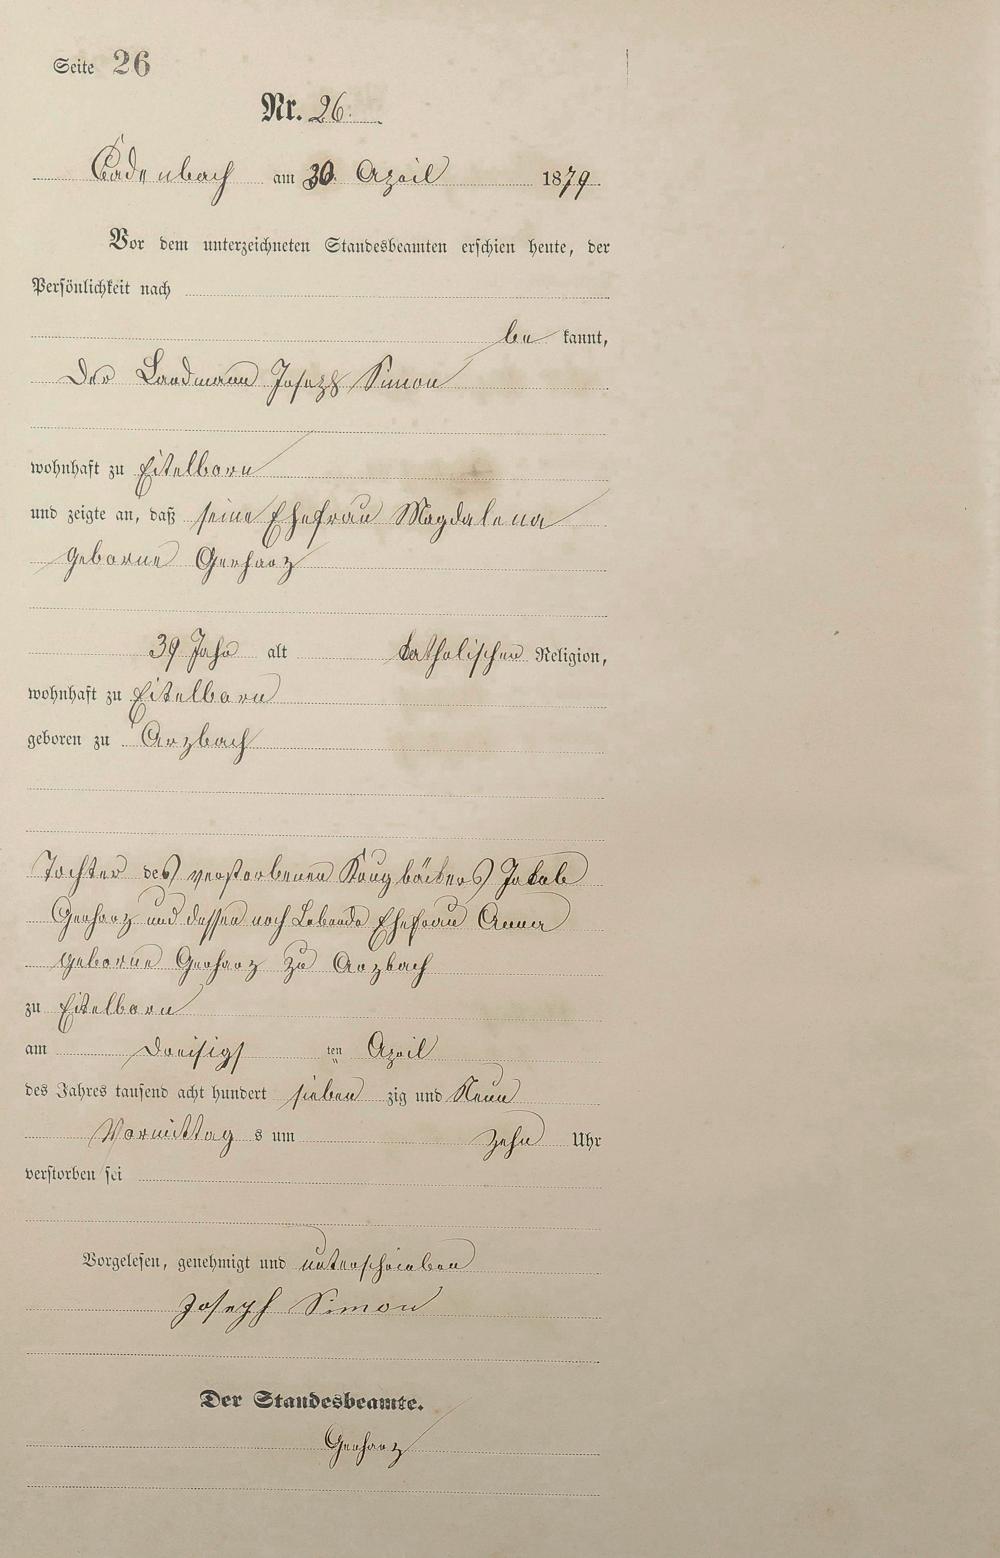 Seite 26
Nr. 26.
Cadenbach am 30. April 1879.
Vor dem unterzeichneten Standesbeamten erschien heute, der
Persönlichkeit nach
be kannt,
Der Landmann Joseph Simon
wohnhaft zu Eitelborn
und zeigte an, daß seine Ehefrau Magdalena
geborne Gerharz
39 Jahr alt katholischen Religion,
wohnhaft zu Eitelborn
geboren zu Arzbach
Tochter des verstorbenen Krugbäckers Jakob
Gerharz und dessen noch Lebende Ehefrau Anna
geborne Gerharz zu Arzbach
zu Eitelborn
am Dreisigs ten April
des Jahres tausend acht hundert sieben zig und Neun
Vormittag s um zehn Uhr
verstorben sei
Vorgelesen, genehmigt und unterschrieben
Joseph Simon
Der Standesbeamte.
Gerharz